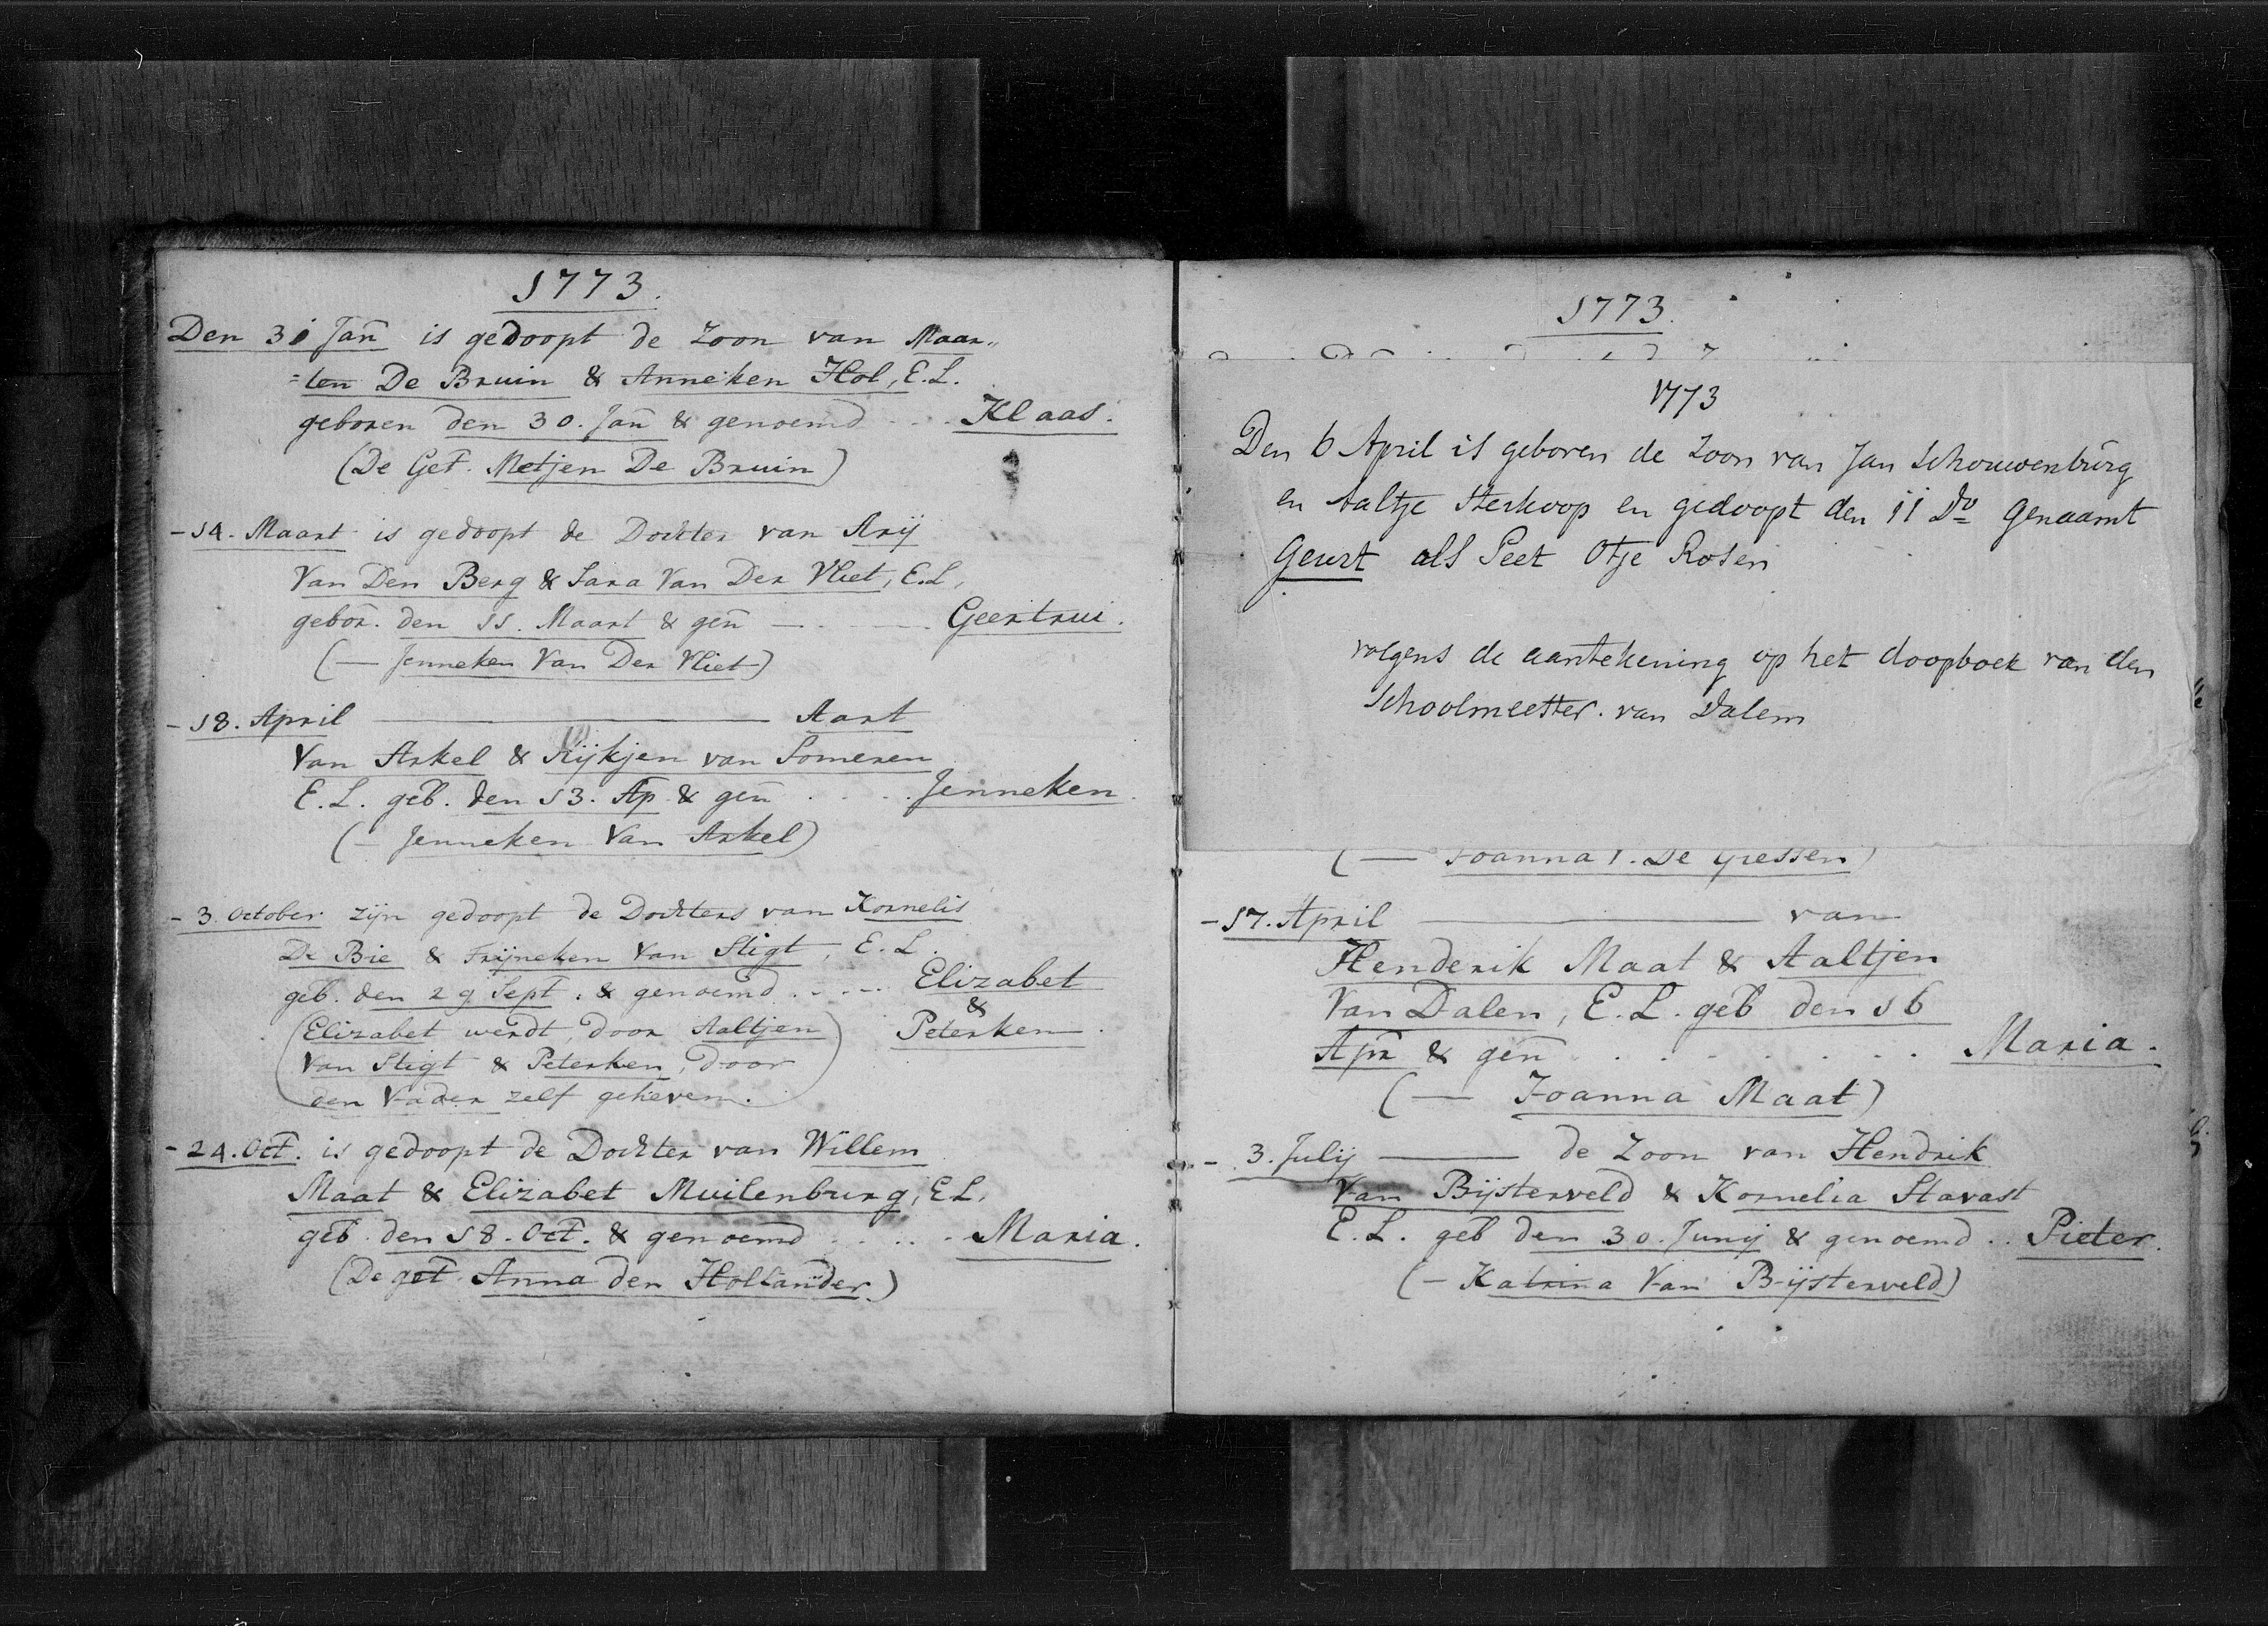 1773.
Den 31 Jan̄ is gedoopt de Zoon van Maar„
=ten De Bruin & Anneken Hol, E.L.
geboren den 30. Jan̄ & genoemd . . . Klaas.
(De Get. Metjen De Bruin)
- 14. Maart is gedoopt de Dochter van Arij
Van Den Berg & Sara Van Der Vliet, E.L,
gebor. den 11. Maart & gen̄ — . . . Geertrui.
(— Jenneken Van Der Vliet)
- 18. April ——— Aart
Van Arkel & Rijkjen van Someren
E.L. geb. den 13. Ap & gen̄ . . . . Jenneken.
(— Jenneken Van Arkel)
- 3. October zijn gedoopt de Dochters van Kornelis
De Bie & Trijneken Van Stigt, E.L.
geb. den 29 Sept. & genoemd . . . . Elizabet
&
(Elizabet werdt, door Aaltjen) Peterken.
Van Stigt & Peterken, door
den Vader zelf geheven.
- 24. Oct. is gedoopt de Dochter van Willem
Maat & Elizabet Muilenburg, E.L.
geb. den 18. Oct. & genoemd . . . . Maria.
(De get. Anna den Hollander.)
1773.
1773
Den 6 April is geboren de Zoon van Jan Schouwenburg
en Aaltje Sterkoop en gedoopt den 11 Do Genaamt
Geurt als Peet Otje Rosen
volgens de aantekening op het doopboek van den
Schoolmeester. van Dalem
(— Joanna P. De Giessen)
- 17. April ——— van
Henderik Maat & Aaltjen
Van Dalen, E.L. geb den 16
Apr & gen̄ . . . . . . . Maria.
(— Joanna Maat)
- 3. Julij ——— de Zoon van Hendrik
Van Bijsterveld & Kornelia Stavast
E.L. geb den 30. Junij & genoemd . . Pieter.
(— Katrina Van Bijsterveld)